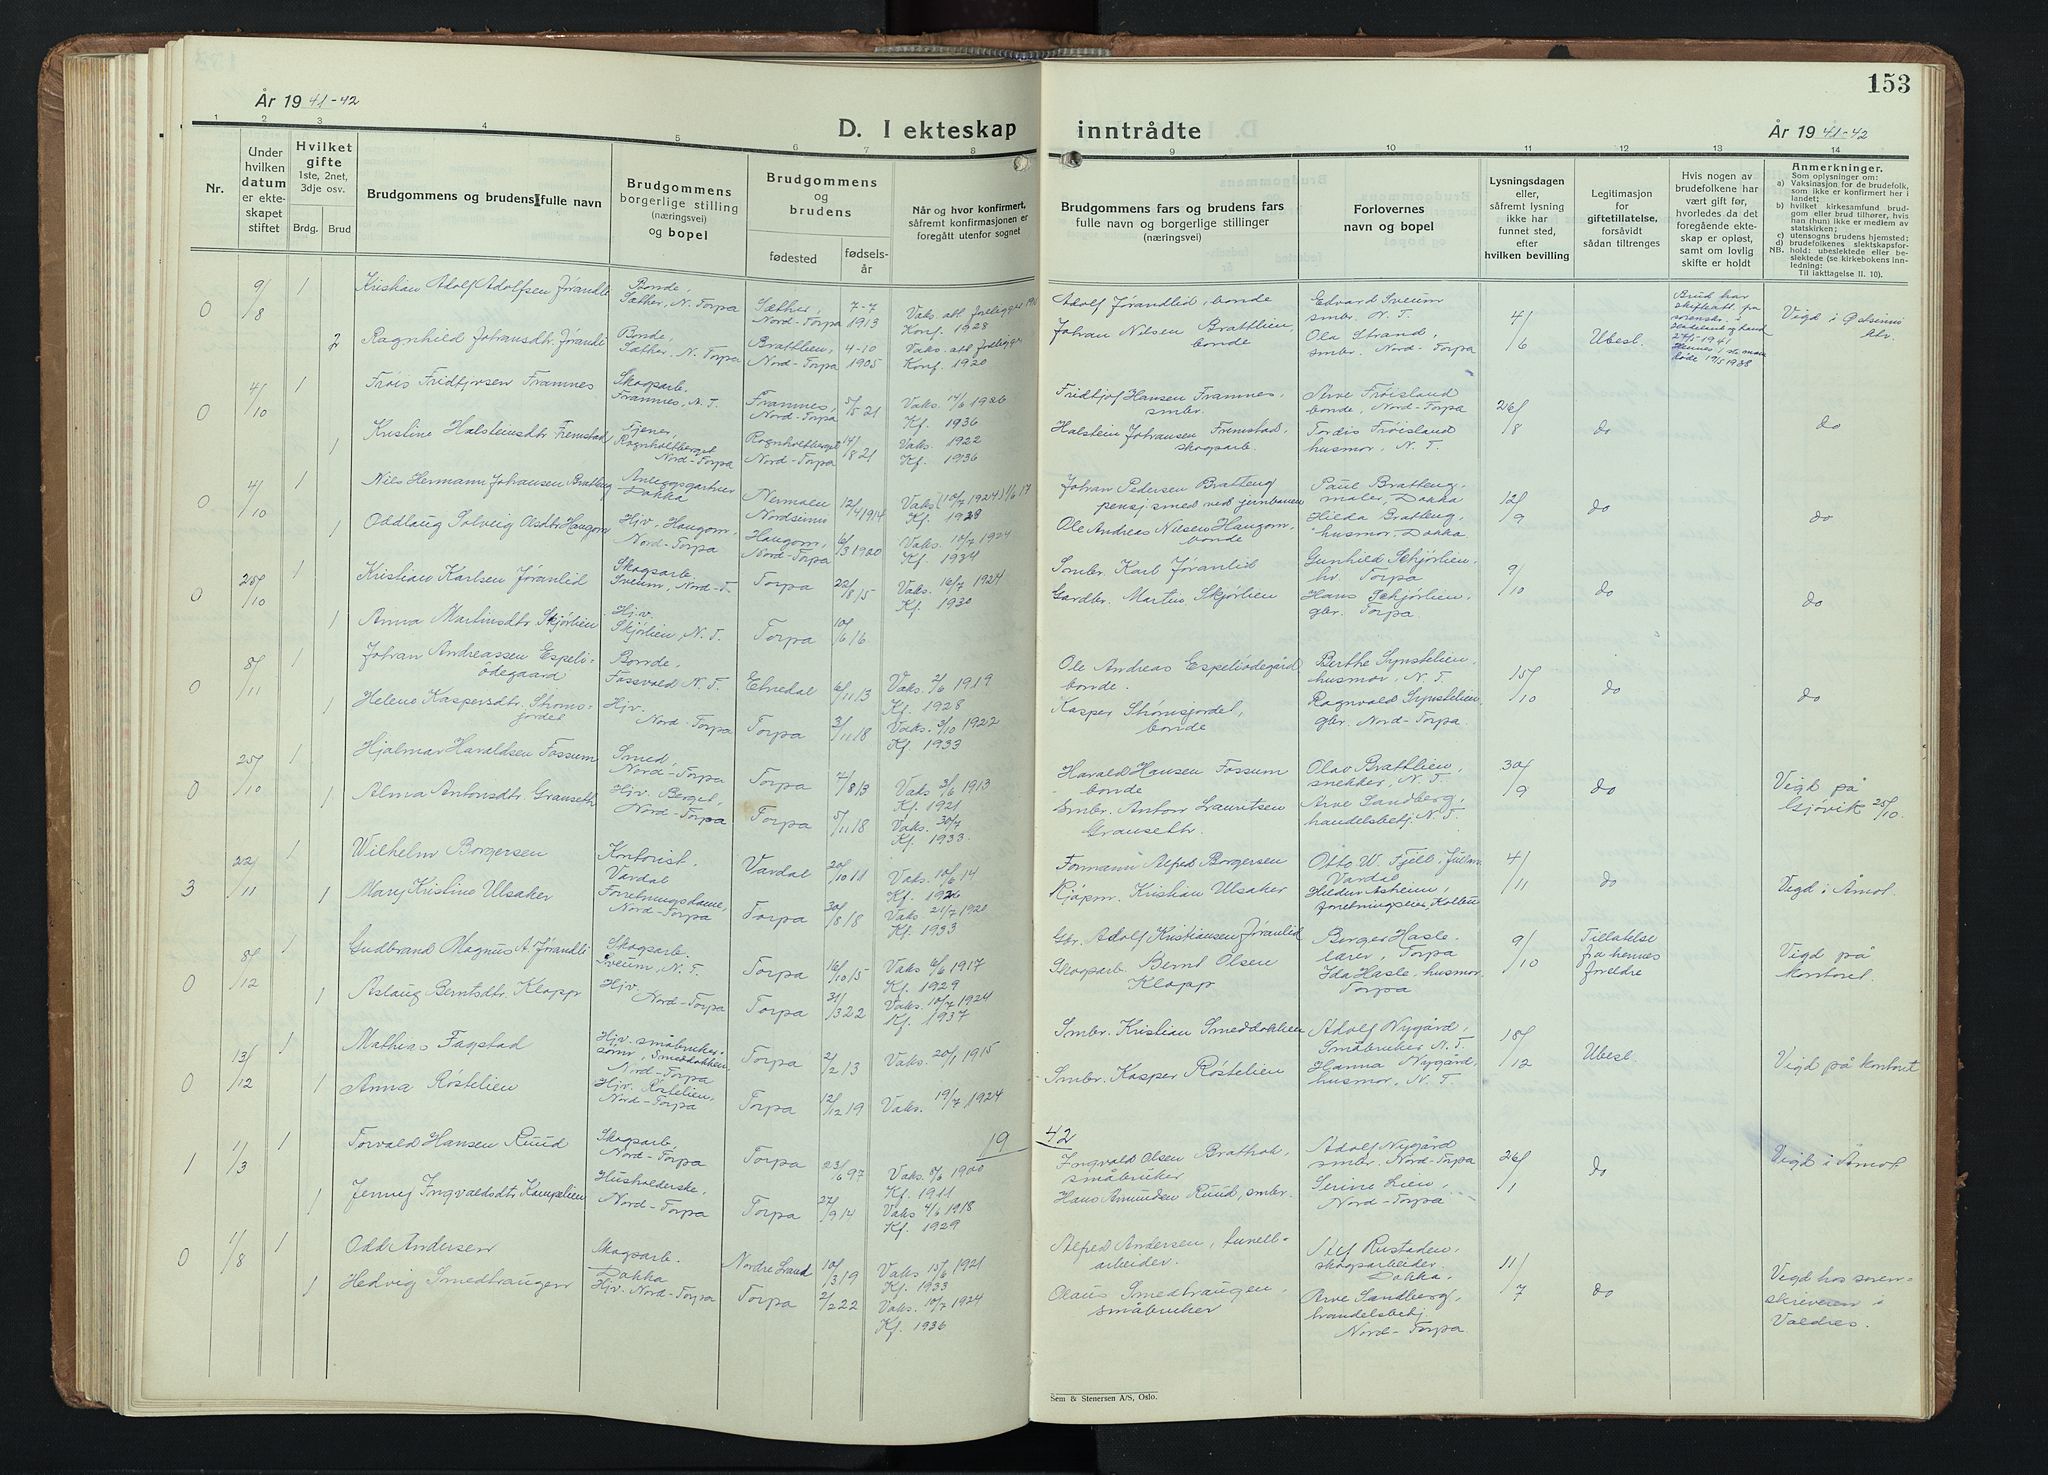 153
År 19 41-42
D. I ekteskap inntrådte
År 19 41-42
1 2 3 4 5 6 7 8 9 10 11 12 13 14
Nr.
Under hvilken datum er ekteskapet stiftet
Hvilket gifte 1ste, 2net, 3dje osv.
Brdg. Brud
Brudgommens og brudens fulle navn
Brudgommens borgerlige stilling (næringsvei) og bopel
Brudgommens og brudens
fødested
fødselsår
Når og hvor konfirmert, såfremt konfirmasjonen er foregått utenfor sognet
Brudgommens fars og brudens fars fulle navn og borgerlige stillinger (næringsvei)
Forlovernes navn og bopel
Lysningsdagen eller, såfremt lysning ikke har funnet sted, efter hvilken bevilling
Legitimasjon for giftetillatelse, forsåvidt sådan tiltrenges
Hvis nogen av brudefolkene har vært gift før, hvorledes da det foregående ekteskap er opløst, samt om lovlig skifte er holdt
Anmerkninger.
Som oplysninger om:
a) Vaksinasjon for de brudefolk, som ikke er konfirmert her i landet;
b) hvilket kirkesamfund brudgom eller brud tilhører, hvis han (hun) ikke er medlem av statskirken;
c) utensogns brudens hjemsted;
d) brudefolkenes slektskapsforhold: ubeslektede eller beslektede (se kirkebokens innledning:
NB.
Til iakttagelse II. 10).
0 9/8 1 Kristian Adolf Adolfsen Jørandli Bonde, Sæther, N. Torpa Sæther, Nord-Torpa 7-7 1913 Vaks. att. foreligger Konf. 1928 Adolf Jørandlid, bonde Edvard Sveum smbr. N. T.
2 Ragnhild Johansdtr. Jørandli Bonde, Sæther, N. Torpa Brattlien, Nord-Torpa 4-10 1905 Vaks. att. foreligger Konf. 1920 Johan Nilsen Brattlien, bonde Ola Strand smbr. Nord-Torpa 4/6 Ubesl. Brud har skifteatt. fra sorenskr. i 27/5-1941 Hennes 1. st. mann døde 19/5 1938 Vigd i
0 4/10 1 Fridtjofsen Framnes Skogsarb. Framnes, N. T. Framnes, Nord-Torpa 5/5 21 Vaks. 17/6 1926 Kf. 1936 Fridtjof Hansen Framnes, smbr. Arve Frøisland bonde, Nord-Torpa 26/8 do do
1 Kristine Halsteinsdtr. Fremstad Tjener, Ragnholtberget Nord-Torpa Ragnholtberget Nord-Torpa 14/8 21 Vaks. 1922 Kf. 1936 Halstein Johansen Fremstad, skogsarb. Tordis Frøisland husmor, N. T.
0 4/10 1 Nils Hermann Johansen Bratteng Anleggsgartner Dokka Nermoen Nordsinni 12/4 1914 Vaks (10/7 1924) 1/6 17 Kf. 1928 Johan Pedersen Bratteng pensj. smed ved jernbanen Paul Bratteng, maler, Dokka 12/9 do do
1 Oddlaug Solveig Olsdtr. Haugom Hjv. Haugom, Nord-Torpa Haugom, Nord-Torpa 6/3 1920 Vaks. 10/7 1924 Kf. 1934 Ole Andreas Nilsen Haugom, bonde Hilda Bratteng, husmor, Dokka
0 25/10 1 Kristian Karlsen Jøranlid Skogsarb. Sveum, Nord-T. Torpa 22/8 15 Vaks. 16/7 1924 Kf. 1930 Smbr. Karl Jøranlid Gunhild Schjørlien, hv. Torpa 9/10 do do
1 Anna Martinsdtr. Skjørlien Hjv. Skjørlien, N. T. Torpa 10/6 16 Gardbr. Martin Skjørlien Hans Schjørlien, gbr. Torpa
0 8/11 1 Johan Andreassen Espeliødegaard Bonde, Fossvold N. T. Etnedal 6/11 13 Vaks. 2/6 1919 Kf. 1928 Ole Andreas Espeliødegård bonde. Berthe Synstelien, husmor, N. T. 15/10 do do
1 Helene Kaspersdtr. Strømsjordet Hjv. Nord-Torpa Torpa 3/11 18 Vaks. 3/10 1922 Kf. 1933 Kasper Strømsjordet, bonde Ragnvald Synstelien gbr. Nord-Torpa.
0 25/10 1 Hjalmar Haraldsen Fossum Smed, Nord-Torpa Torpa 7/8 13 Vaks. 3/6 1913 Kf. 1921 Harald Hansen Fossum bonde Olav Brattlien, snekker, N. T. 30/9 do Vigd på Gjøvik 25/10.
1 Alma Antonsdtr. Granseth Hjv. Berget, Nord-Torpa Torpa 5/11 18 Vaks. 30/7 Kf. 1933 Smbr. Anton Lauritsen Granseth. Arve Sandberg, handelsbetj. N. T.
3 22/11 1 Wilhelm Borgersen Kontorist. Vardal Vardal 20/10 11 Vaks. 10/6 14 Kf. 1926 Formann Alfred Borgersen Otto W. Fjell, Vardal 4/11 do Vigd i Åmot
1 Mary Kristine Ulsaker Forretningsdame, Nord-Torpa Torpa 30/8 18 Vaks. 21/7 1920 Kf. 1933 Kjøpm. Kristian Ulsaker Asheim,
0 8/12 1 Gudbrand Magnus A. Jørandli Skogsarb. Sveum, N. T. Torpa 16/10 15 Vaks 6/6 1917 Kf. 1929 Gbr. Adolf Kristiansen Jøranlid Borger Hasle. lærer, Torpa 9/10 Tillatelse fra hennes foreldre Vigd på kontoret.
1 Aslaug Berntsdtr. Klopp Hjv. Nord-Torpa Torpa 31/3 22 Vaks. 10/7 1924 Kf. 1937 Skogsarb. Bernt Olsen Klopp Ida Hasle, husmor. Torpa
0 13/12 1 Mathias Fagstad Hjv. småbrukersønn, Smeddokken Nord-Torpa Torpa 2/2 13 Vaks. 20/1 1915 Smbr. Kristian Smeddokken Adolf Nygård, Småbruker N. T. 18/12 Ubesl. Vigd på kontoret
1 Anna Røstelien Hjv. Røstelien, Nord-Torpa Torpa 12/12 19 Vaks. 19/7 1924 Smbr. Kasper Røstelien Hanna Nygård, husmor, N. T
19 42
1 1/3 1 Torvald Hansen Ruud Skogsarb. Nord-Torpa Torpa 23/6 97 Vaks. 5/6 1900 Kf. 1911 Ingvald Olsen Brathol, småbruker Adolf Nygård smbr. Nord-Torpa 26/1 do Vigd i Åmot
1 Jenny Ingvaldsdtr. Kampelien Husholderske, Nord-Torpa Torpa 27/9 14 Vaks 4/6 1918 Kf. 1929 Hans Amundsen Ruud, smbr. Serine Lien, Nord-Torpa
0 1/8 1 Odd Andersen Skogsarb. Dokka Nordre Land 10/3 19 Vaks 15/6 1921 Kf. 1933 Alfred Andersen, tunellarbeider. Alf Rustaden, skogsarbeider. Dokka. 11/7 do Vigd hos sorenskriveren i Valdres.
1 Hedvig Smedhaugen Hjv. Nord-Torpa Torpa 2/2 22 Vaks. 10/7 1924 Kf. 1936 Olaus Smedhaugen, småbruker Arve Sandberg, handelsbetj. Nord-Torpa.
Sem & Stenersen A/S, Oslo.